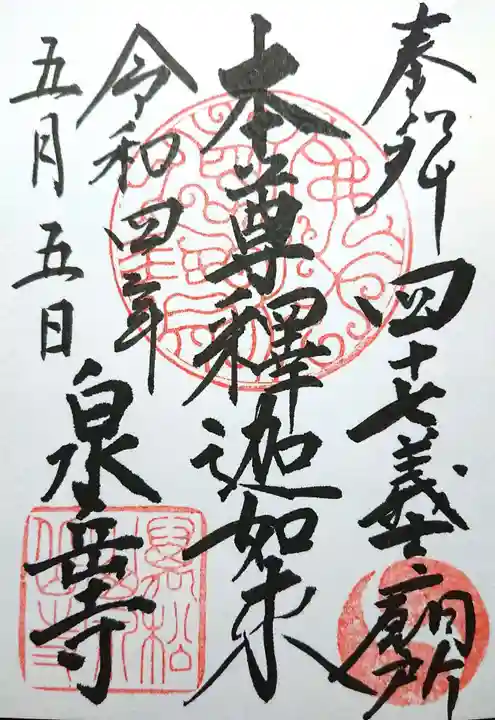 奉拝 四十七義士廟所
本尊釋迦如来
令和四年
五月五日
泉岳寺